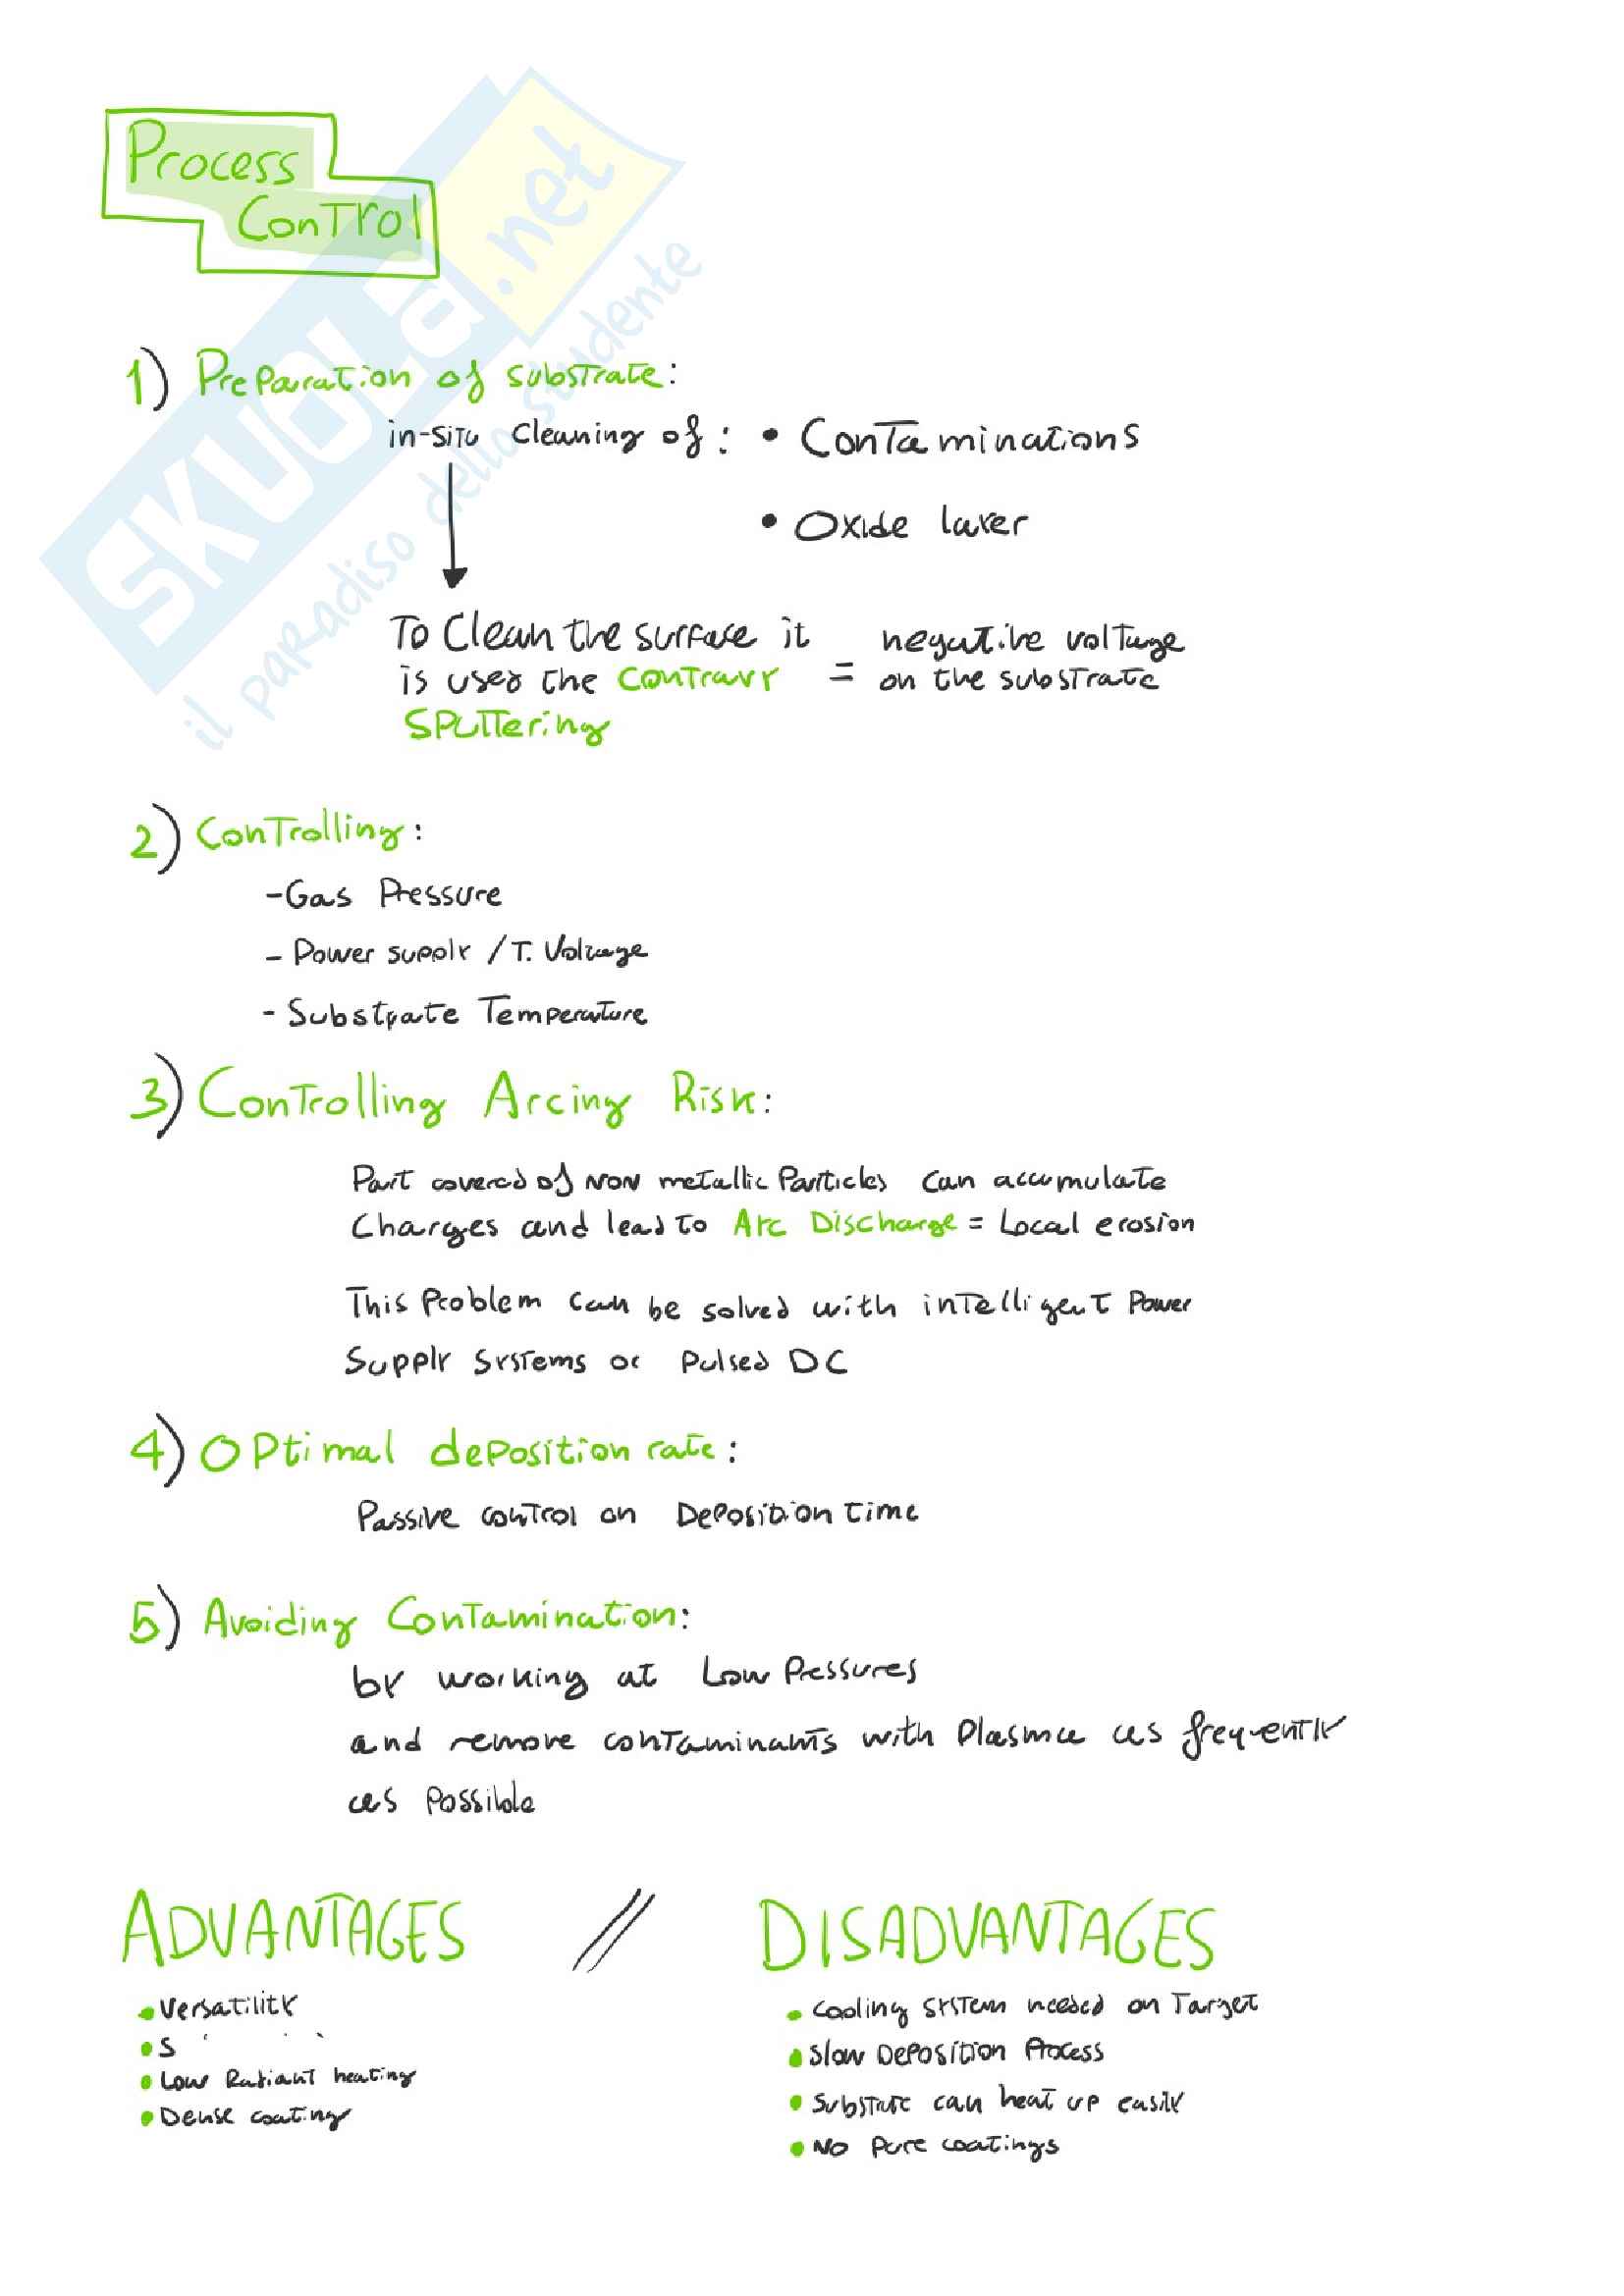 Process
Control
SKUOLa.net
il paradiso dello studente
1) Preparation of substrate:
in-situ cleaning of: • Contaminations
• Oxide layer
To clean the surface it
is used the contrary = negative voltage on the substrate
sputtering
2) Controlling:
- Gas Pressure
- Power supply / T. Voltage
- Substrate Temperature
3) Controlling Arcing Risk:
Part covered of non metallic Particles can accumulate
charges and lead to Arc Discharge = Local erosion
This Problem can be solved with intelligent Power
Supply systems or pulsed DC
4) Optimal deposition rate:
Passive control on Deposition time
5) Avoiding Contamination:
by working at Low Pressures
and remove contaminants with Plasma as frequently
as possible
ADVANTAGES // DISADVANTAGES
• Versatility
• S
• Low Radiant heating
• Dense coating
• Cooling system needed on Target
• Slow Deposition Process
• Substate can heat up easily
• No pure coatings